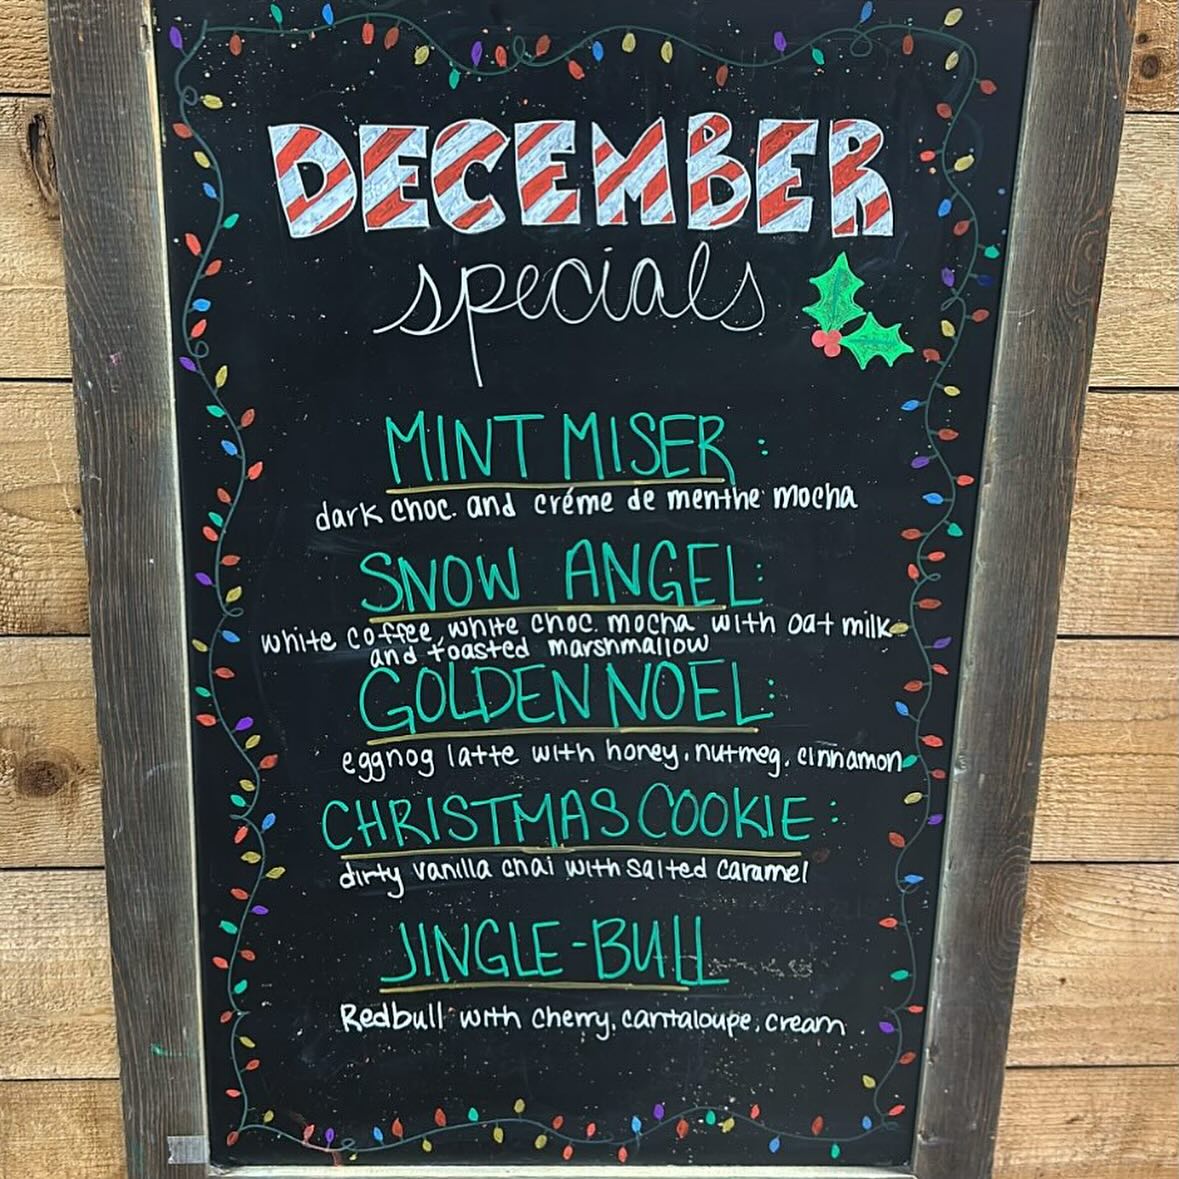 DECEMBER
specials
MINT MISER:
dark choc. and créme de menthe mocha
SNOW ANGEL:
white coffee, white choc. mocha with oat milk
and toasted marshmallow
GOLDEN NOEL:
eggnog latte with honey, nutmeg, cinnamon
CHRISTMAS COOKIE:
dirty vanilla chai with salted caramel
JINGLE-BULL
Redbull with cherry, cantaloupe, cream